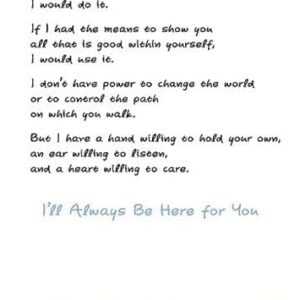 I would do it.
If I had the means to show you
all that is good within yourself,
I would use it.
I don't have power to change the world
or to control the path
on which you walk.
But I have a hand willing to hold your own,
an ear willing to listen,
and a heart willing to care.
I'll Always Be Here for You